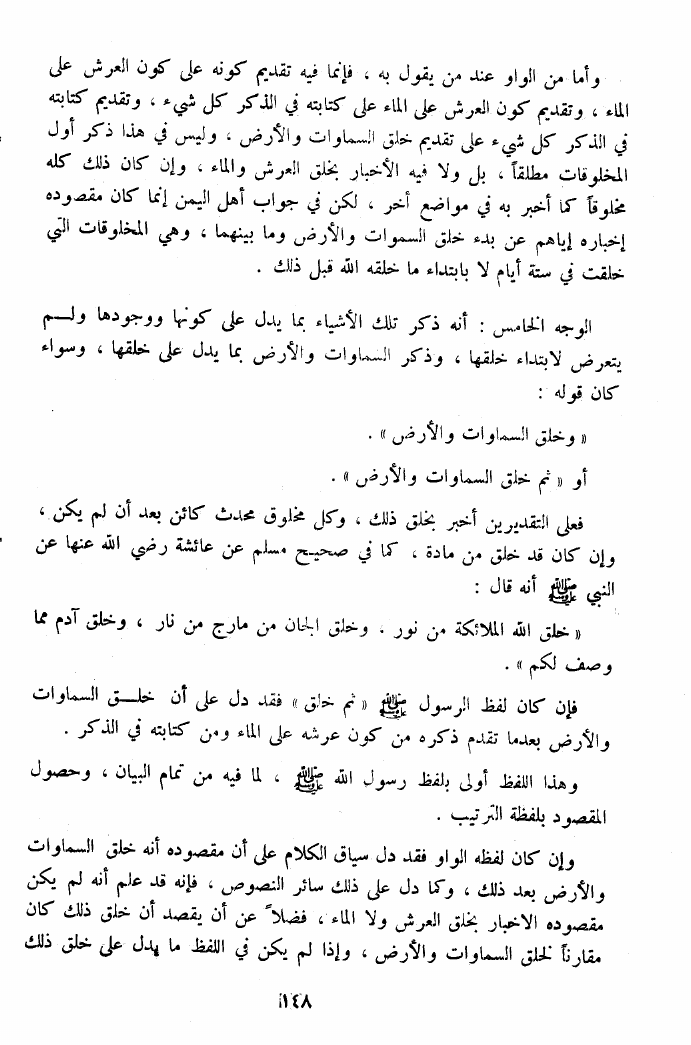 وأما من الواو عند من يقول به ، فإنما فيه تقديم كونه على كون العرش على
الماء ، وتقديم كون العرش على الماء على كتابته في الذكر كل شيء ، وتقديم كتابته
في الذكر كل شيء على تقديم خلق السماوات والأرض ، وليس في هذا ذكر أول
المخلوقات مطلقاً ، بل ولا فيه الأخبار بخلق العرش والماء ، وإن كان ذلك كله
مخلوقاً كما أخبر به في مواضع أخر ، لكن في جواب أهل اليمن إنما كان مقصوده
إخباره إياهم عن بدء خلق السموات والأرض وما بينهما ، وهي المخلوقات التي
خلقت في ستة أيام لا بابتداء ما خلقه الله قبل ذلك .
الوجه الخامس : أنه ذكر تلك الأشياء بما يدل على كونها ووجودها ولـم
يتعرض لابتداء خلقها ، وذكر السماوات والأرض بما يدل على خلقها ، وسواء
كان قوله :
« وخلق السماوات والأرض » .
أو « ثم خلق السماوات والأرض » .
فعلى التقديرين أخبر بخلق ذلك ، وكل مخلوق محدث كائن بعد أن لم يكن ،
وإن كان قد خلق من مادة ، كما في صحيح مسلم عن عائشة رضي الله عنها عن
النبي ﷺ أنه قال :
« خلق الله الملائكة من نور . وخلق الجان من مارج من نار ، وخلق آدم مما
وصف لكم » .
فإن كان لفظ الرسول ﷺ « ثم خلق » فقد دل على أن خلـق السماوات
والأرض بعدما تقدم ذكره من كون عرشه على الماء ومن كتابته في الذكر .
وهذا اللفظ أولى بلفظ رسول الله ﷺ ، لما فيه من تمام البيان ، وحصول
المقصود بلفظة الترتيب .
وإن كان لفظه الواو فقد دل سياق الكلام على أن مقصوده أنه خلق السماوات
والأرض بعد ذلك ، وكما دل على ذلك سائر النصوص ، فإنه قد علم أنه لم يكن
مقصوده الاخبار بخلق العرش ولا الماء ، فضلاً عن أن يقصد أن خلق ذلك كان
مقارناً لخلق السماوات والأرض ، وإذا لم يكن في اللفظ ما يدل على خلق ذلك
١٤٨